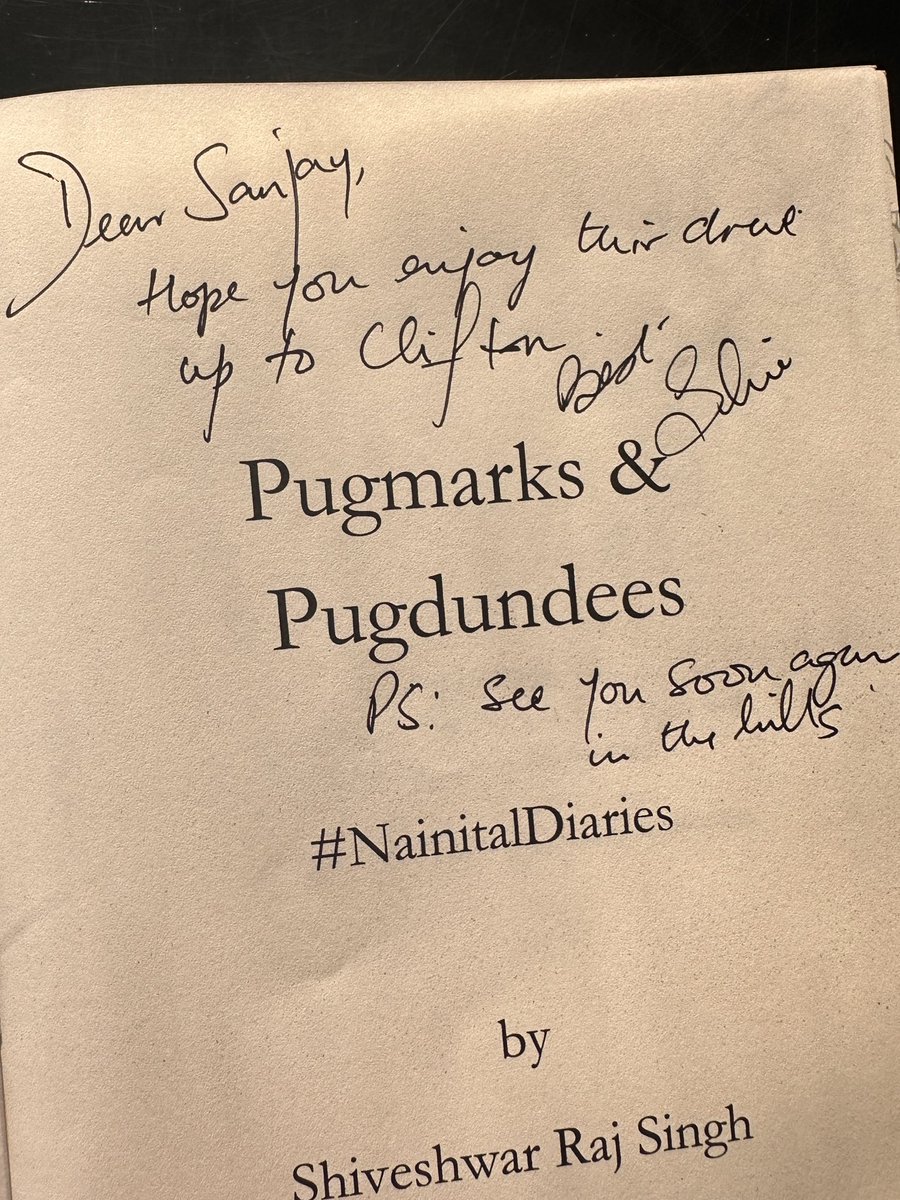 Dear Sanjay,
Hope you enjoy this drive
up to Clifton
Best Shiv
Pugmarks &
Pugdundees
PS: See you soon again
in the hills
#NainitalDiaries
by
Shiveshwar Raj Singh